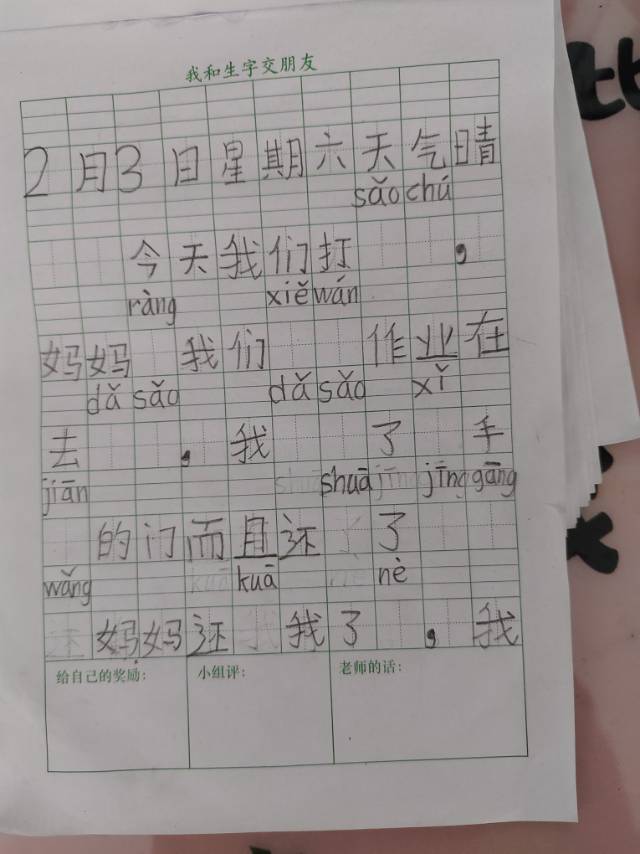 我和生字交朋友
2月3日星期六天气晴
sǎo chú
今天我们打 ，
ràng xiě wán
妈妈 我们 作业在
dǎ sǎo dǎ sǎo xǐ
去 ，我 了 手
jiān shuā jīng gāng
的门而且还 了
wǎng kuā nè
妈妈还 我了 ，我
给自己的奖励： 小组评： 老师的话：